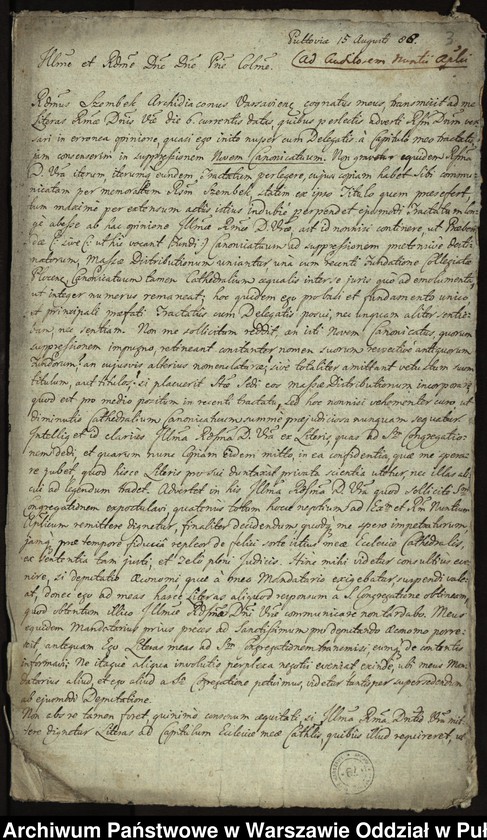 Pultoviæ 15 Augusti
(ad Auditorem Nuntii Aplici
Illme et Rdme Dne Dne Pne Colme.
Rdmus Szembek Archidiaconus Varsaviens, cognatus meus, transmisit ad me
Literas Rmæ Dnis Vræ die 6 currentis datas, quibus perlectis adverti Rmam Dnem ver
sari in erronea opinione, quasi ego inito nuper cum Delegatis à Capitulo meo tractatu,
jam consenserim in suppressionem Novem Canonicatuum. Non gravetur equidem Rma
D. Vra iterum, iterumq eundem Tractatum perlegere, cujus copiam habet sibi commu-
nicatam per memoratum Rdm Szembek, statim ex ipso Titulo quem præsefert,
tum maxime per extensum actus istius indubie perpendet ejusmodi Tractatum lon-
gè abesse ab hac opinione Illmæ Rmæ D. Vræ, ait id nonnisi continere, ut Præben
dæ (: sive (: ut hic vocant fundi :) Canonicatuum ad suppressionem prætensive desti-
natorum, Massæ Distributionum uniantur unà cum recenti fundatione Collegiatæ
Canonicatuum tamen Cathedralium æqualis inter se juris quò ad emolumenta,
ut integer numerus remaneat; hoc quidem ego pro basi et fundamento unico,
et principali præfati Tractatus cum Delegatis posui, nec unquam aliter sensi
nec sentiam. Non me sollicitum reddit, an isti Novem Canonicatus, quorum
suppressionem impugno, retineant constanter nomen suorum respectivè antiquorum
fundorum? an cujusvis alterius nomenclaturæ; sive totaliter amittant vetustum suum
titulum, aut titulos; si placuerit Stæ Sedi eos massæ Distributionum incorporare
quod est pro medio positum in recenti tractatu, sed hoc nonnisi vehementer curo, ut
diminutio Cathedralium Canonicatuum summè præjudiciosa nunquam sequatur.
Intelliget id clarius Illma Rdma D. Vra ex Literis, quas ad Stm Congregatio-
nem dedi, et quarum nunc Copiam eidem mitto, in ea confidentia, quæ me spera-
re jubet, quod hisce Literis pro sui duntaxat privata scientia utetur, nec illas ali-
cui ad legendum tradet. Advertet in his Illma Rdma D. Vra quod sollicitè Stm
Congregationem expostulavi, quatenus totum hocce negotium ad Rm Nuntium
Aplicum remittere dignetur, finaliter decidendum quodq me spero impetraturum,
jamq præ tempore fiduciâ repleor de felici sorte istius meæ Ecclesiæ Cathedralis,
ex sententia tam justi, et Zeli pleni Judicis. Hinc mihi videtur consultius eve-
nire, si deputatio Œconomi quæ à meo Mandatario exigebatur suspendi vale-
at, donec ego ad meas hasce Literas aliquod responsum à S. Congregatione obtineam,
quod obtentum illico Illmæ Rdmæ Dni Vræ communicare non tardabo. Meus
equidem Mandatarius prius preces ad Sanctissimum pro deputando œconomo porre-
xit, antequam Ego Literas meas ad Stm Congregationem transmisi, eumq de contentis
informavi; Ne itaque aliqua involutio perplexa negotii eveniat exinde, ubi meus Man
datarius aliud, et ego aliud a Sta Congregatione petivimus, videtur tantisper supersedendum
ab ejusmodi Deputatione.
Non abs re tamen foret, quinimo consonum æquitati, si Illma Rma Dnatio Vra mit-
tere dignetur Literas ad Capitulum Ecclesiæ meæ Cathlis, quibus illud requireret ut
Archiwum Państwowe w Warszawie Oddział w Puł